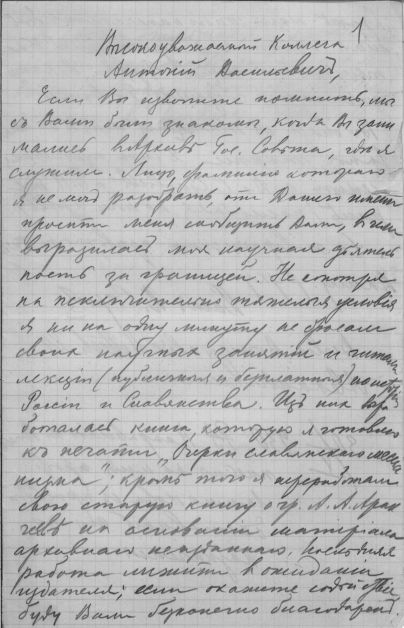 1
Высокоуважаемый Коллега
Антоній Васильевичъ,
Если Вы изволите помнить, мы
съ Вами были знакомы, когда Вы зани
мались в Архивѣ Гос. Совѣта, гдѣ я
служилъ. Лицо, фамилію котораго
я не могъ разобрать, отъ Вашего имени
проситъ меня сообщить Вамъ, въ чемъ
выразилась моя научная дѣятель
ность за границей. Не смотря
на исключительно тяжелыя условія
я ни на одну минуту не бросалъ
своихъ научныхъ занятій и читалъ
лекціи (публичныя и безплатныя) по исторіи
Россіи и Славянства. Изъ них выра
боталась книга, которую я готовлю
къ печати „Очерки славянскаго
низма“; кромѣ того я переработалъ
свою старую книгу о гр. А. А. Арак
чеевѣ на основаніи матеріала
архивнаго неизданнаго.
работа лежитъ в ожиданіи
издателя; если окажете содѣйствіе
буду Вамъ безконечно благодаренъ.